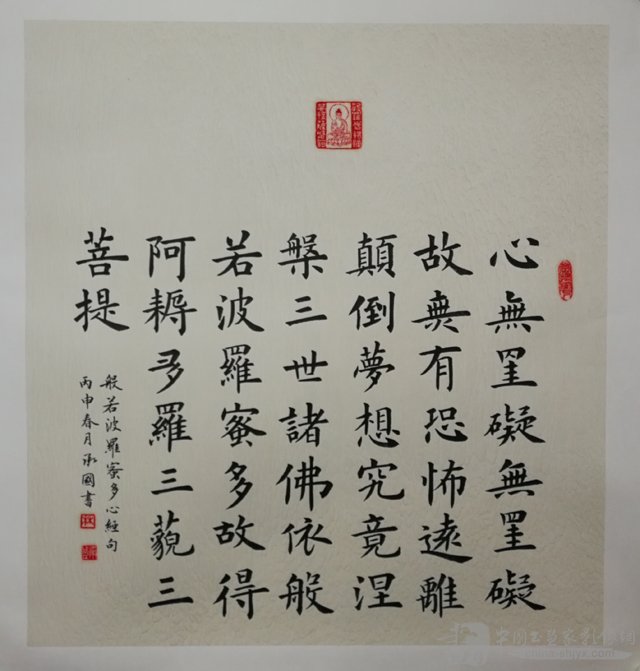 心無罣礙無罣礙
故無有恐怖遠離
顛倒夢想究竟涅
槃三世諸佛依般
若波羅蜜多故得
阿耨多羅三藐三
菩提
般若波羅蜜多心經句
丙申春月承國書